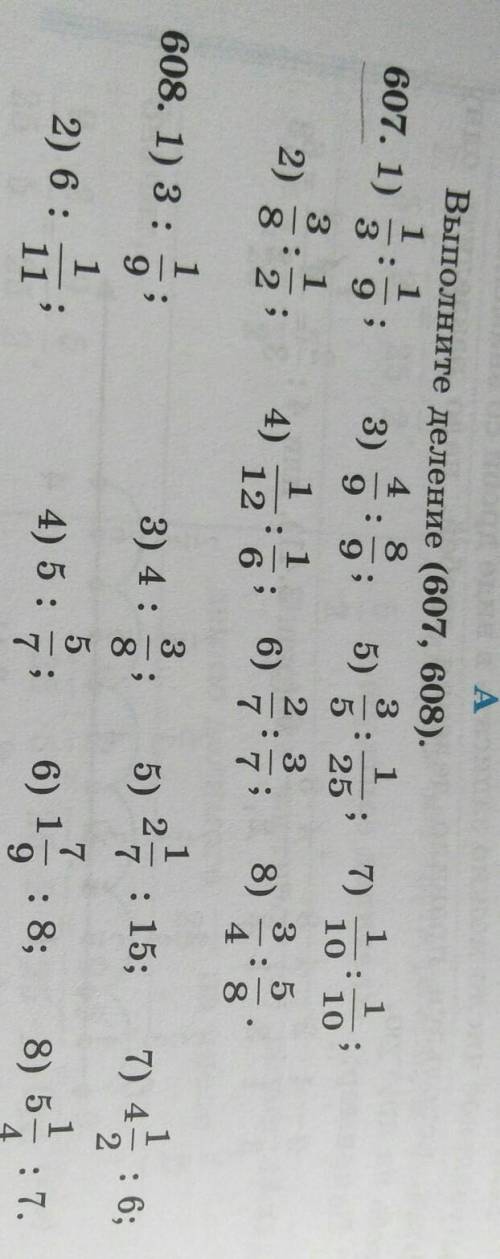 А
Выполните деление (607, 608).
607. 1) 1/3 : 1/9; 3) 4/9 : 8/9; 5) 3/5 : 1/25; 7) 1/10 : 1/10;
2) 3/8 : 1/2; 4) 1/12 : 1/6; 6) 2/7 : 3/7; 8) 3/4 : 5/8.
608. 1) 3 : 1/9; 3) 4 : 3/8; 5) 2 1/7 : 15; 7) 4 1/2 : 6;
2) 6 : 1/11; 4) 5 : 5/7; 6) 1 7/9 : 8; 8) 5 1/4 : 7.